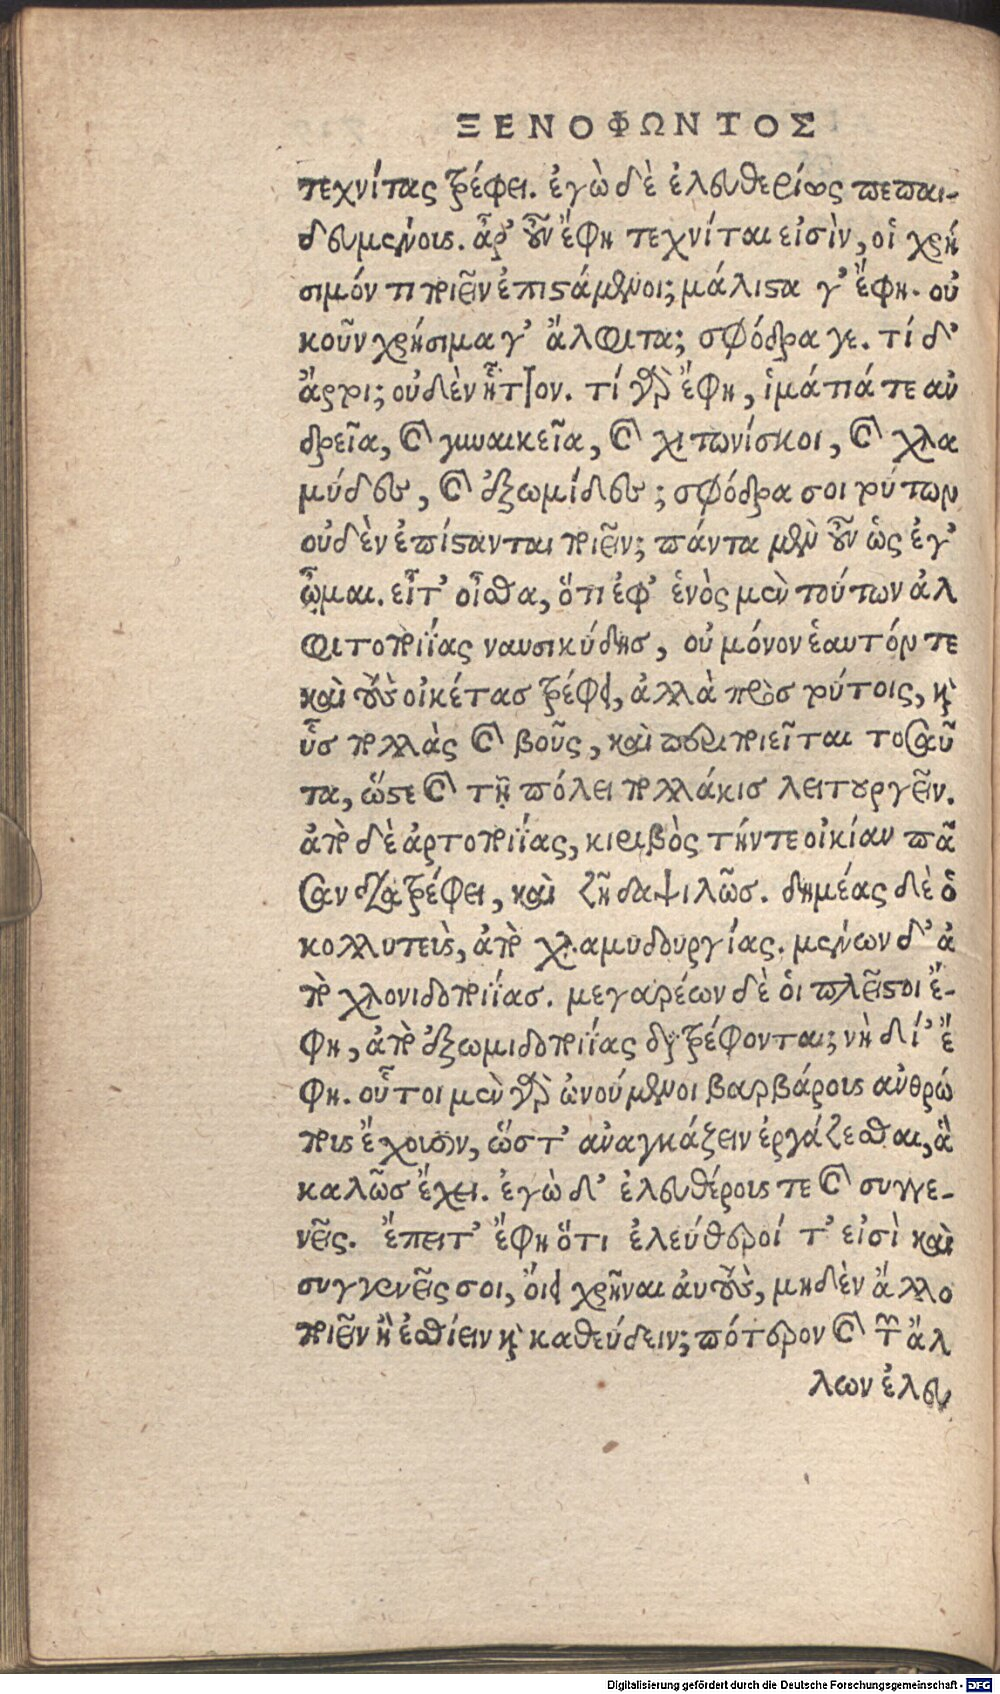 ΞΕΝΟΦΩΝΤΟΣ
τεχνίτας τρέφει. ἐγὼ δὲ ἐλευθερίως πεπαι-
δευμένους. ἆρ’ οὖν ἔφη τεχνίται εἰσὶν, οἱ χρή
σιμόν τι ποιεῖν ἐπιστάμενοι; μάλιστα γ’ ἔφη. οὐ
κοῦν χρήσιμα γ’ ἄλφιτα; σφόδρα γε. τί δ’
ἄρτοι; οὐδὲν ἧττον. τί γὰρ ἔφη, ἱμάτιά τε ἀν
δρεῖα, καὶ γυναικεῖα, καὶ χιτωνίσκοι, καὶ χλα
μύδες, καὶ ἐξωμίδες; σφόδρα σοι τούτων
οὐδὲν ἐπίστανται ποιεῖν; πάντα μὲν οὖν ὡς ἐγ’
ᾦμαι. εἶτ’ οἶσθα, ὅτι ἐφ’ ἑνὸς μὲν τούτων ἀλ
φιτοποιΐας ναυσικύδης, οὐ μόνον ἑαυτόν τε
καὶ τοὺς οἰκέτας τρέφει, ἀλλὰ πρὸς τούτοις, καὶ
ὗς πολλὰς καὶ βοῦς, καὶ περιποιεῖται τοσαῦ
τα, ὥστε καὶ τῇ πόλει πολλάκις λειτουργεῖν.
ἀπὸ δὲ ἀρτοποιΐας, κιριβὸς τήν τε οἰκίαν πᾶ
σαν διατρέφει, καὶ ζῇ δαψιλῶς. δημέας δὲ ὁ
κολλυτεὺς, ἀπὸ χλαμυδουργίας. μένων δ’ ἀ
πὸ χλονιδοποιΐας. μεγαρέων δὲ οἱ πλεῖστοι ἔ-
φη, ἀπὸ ἐξωμιδοποιΐας διατρέφονται; νὴ δί’ ἔ
φη. οὗτοι μὲν γὰρ ὠνούμενοι βαρβάρους ἀνθρώ
πους ἔχουσιν, ὥστ’ ἀναγκάζειν ἐργάζεσθαι, ἃ
καλῶς ἔχει. ἐγὼ δ’ ἐλευθέρους τε καὶ συγγε-
νεῖς. ἔπειτ’ ἔφη ὅτι ἐλεύθεροί τ’ εἰσὶ καὶ
συγγενεῖς σοι, οἴει χρῆναι αὐτοὺς, μηδὲν ἄλλο
ποιεῖν ἢ ἐσθίειν καὶ καθεύδειν; πότερον καὶ τῶν ἄλ
λων ἐλευ
Digitalisierung gefördert durch die Deutsche Forschungsgemeinschaft - DFG